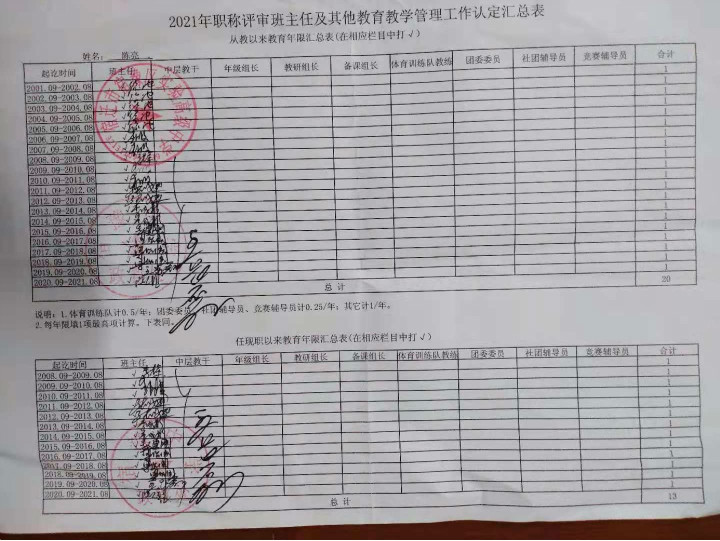 2021年职称评审班主任及其他教育教学管理工作认定汇总表
从教以来教育年限汇总表(在相应栏目中打√)
姓名: 陈亮
起讫时间 班主任 中层教干 年级组长 教研组长 备课组长 体育训练队教练 团委委员 社团辅导员 竞赛辅导员 合计
2001.09-2002.08 √ 1
2002.09-2003.08 √ 1
2003.09-2004.08 √ 1
2004.09-2005.08 √ 1
2005.09-2006.08 √ 1
2006.09-2007.08 √ 1
2007.09-2008.08 √ 1
2008.09-2009.08 √ 1
2009.09-2010.08 √ 1
2010.09-2011.08 √ 1
2011.09-2012.08 √ 1
2012.09-2013.08 √ 1
2013.09-2014.08 √ 1
2014.09-2015.08 √ 1
2015.09-2016.08 √ 1
2016.09-2017.08 √ 1
2017.09-2018.08 √ 1
2018.09-2019.08 √ 1
2019.09-2020.08 √ 1
2020.09-2021.08 √ 1
总 计 20
说明:1.体育训练队计0.5/年;团委委员、社团辅导员、竞赛辅导员计0.25/年;其它计1/年。
2.每年限填1项最高项计算。下表同。
任现职以来教育年限汇总表(在相应栏目中打√)
起讫时间 班主任 中层教干 年级组长 教研组长 备课组长 体育训练队教练 团委委员 社团辅导员 竞赛辅导员 合计
2008.09-2009.08 √ 1
2009.09-2010.08 √ 1
2010.09-2011.08 √ 1
2011.09-2012.08 √ 1
2012.09-2013.08 √ 1
2013.09-2014.08 √ 1
2014.09-2015.08 √ 1
2015.09-2016.08 √ 1
2016.09-2017.08 √ 1
2017.09-2018.08 √ 1
2018.09-2019.08 √ 1
2019.09-2020.08 √ 1
2020.09-2021.08 √ 1
总 计 13